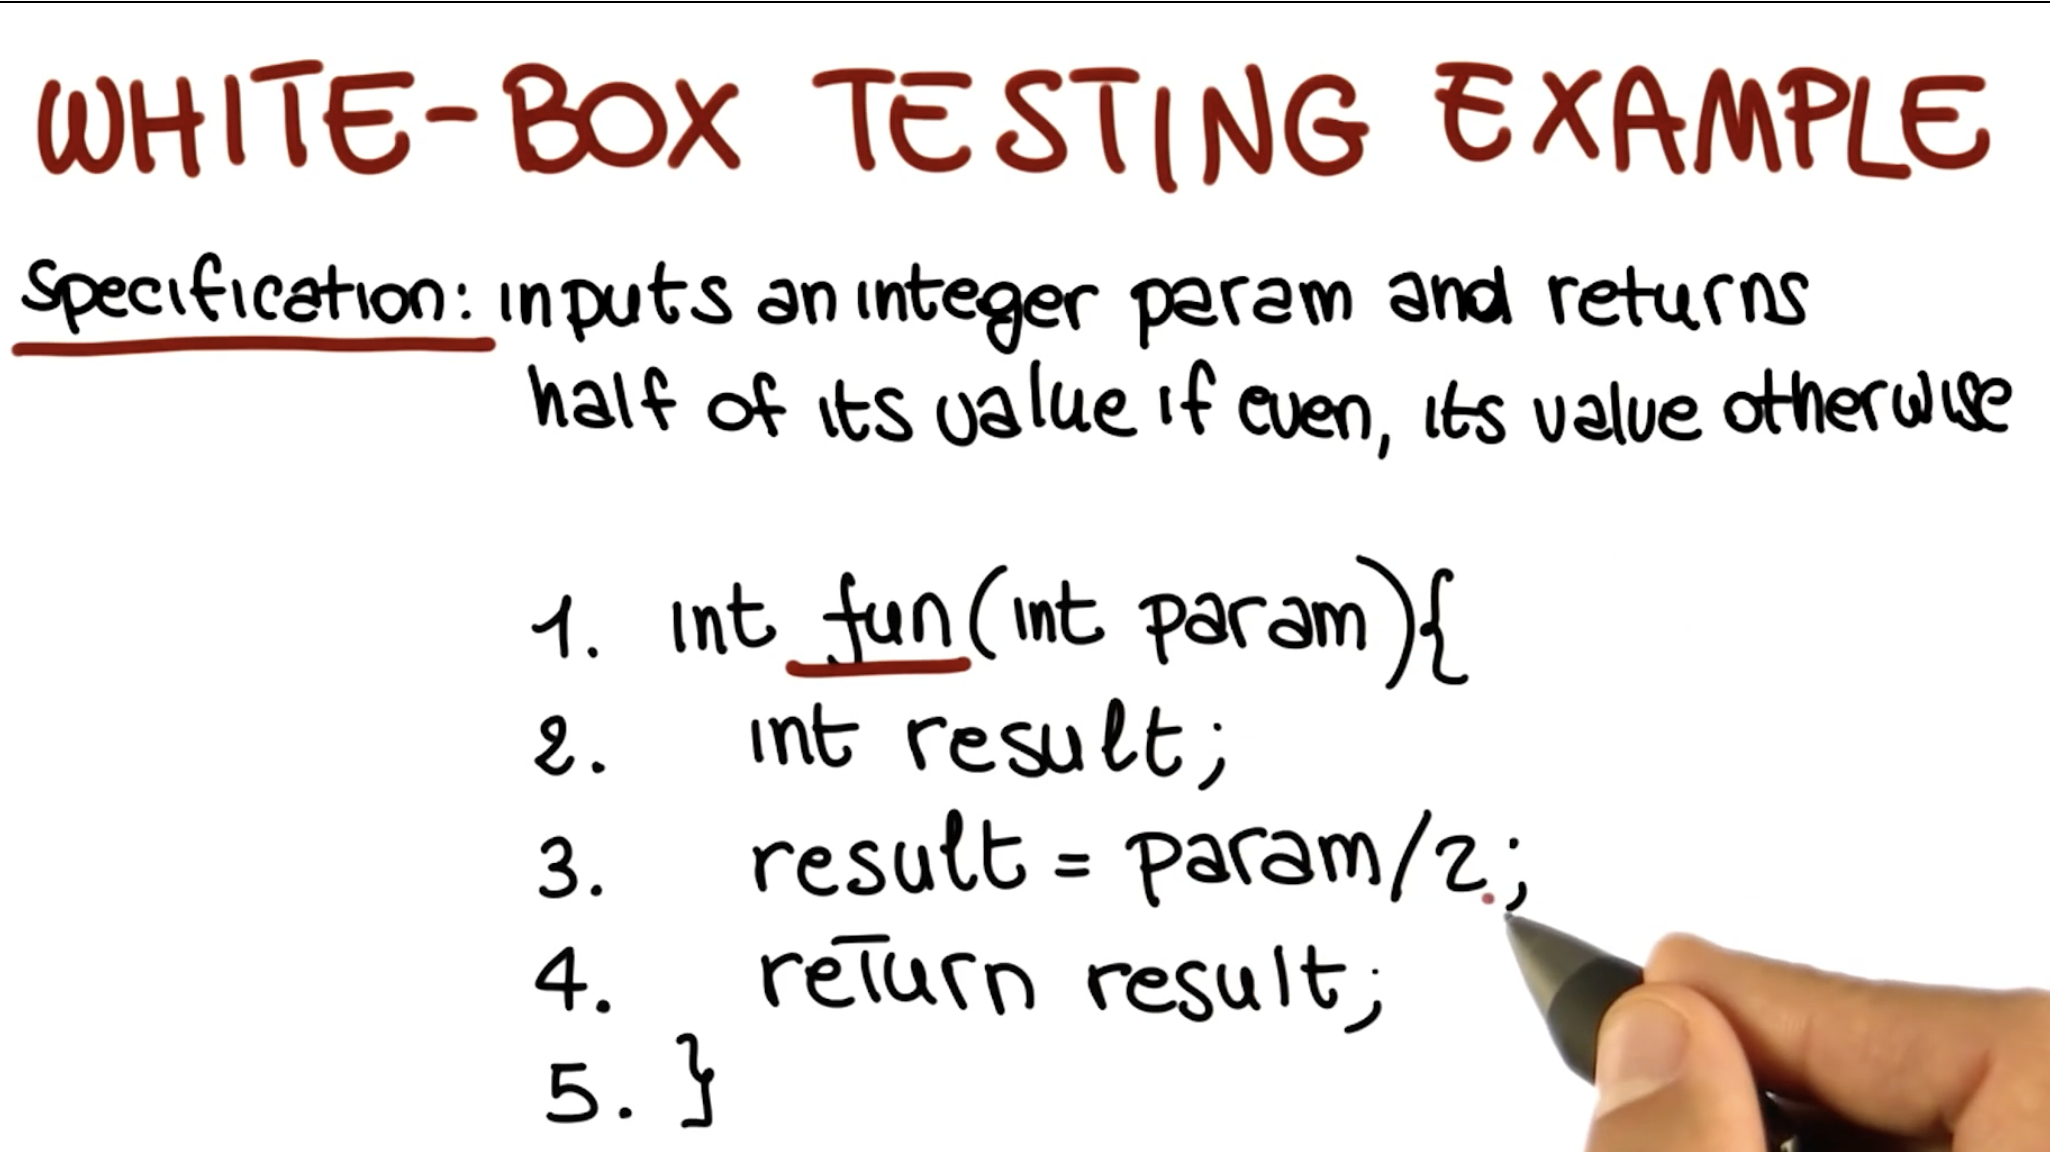 WHITE-BOX TESTING EXAMPLE
Specification: inputs an integer param and returns
half of its value if even, its value otherwise
1. int fun(int param){
2. int result;
3. result = param/2;
4. return result;
5. }